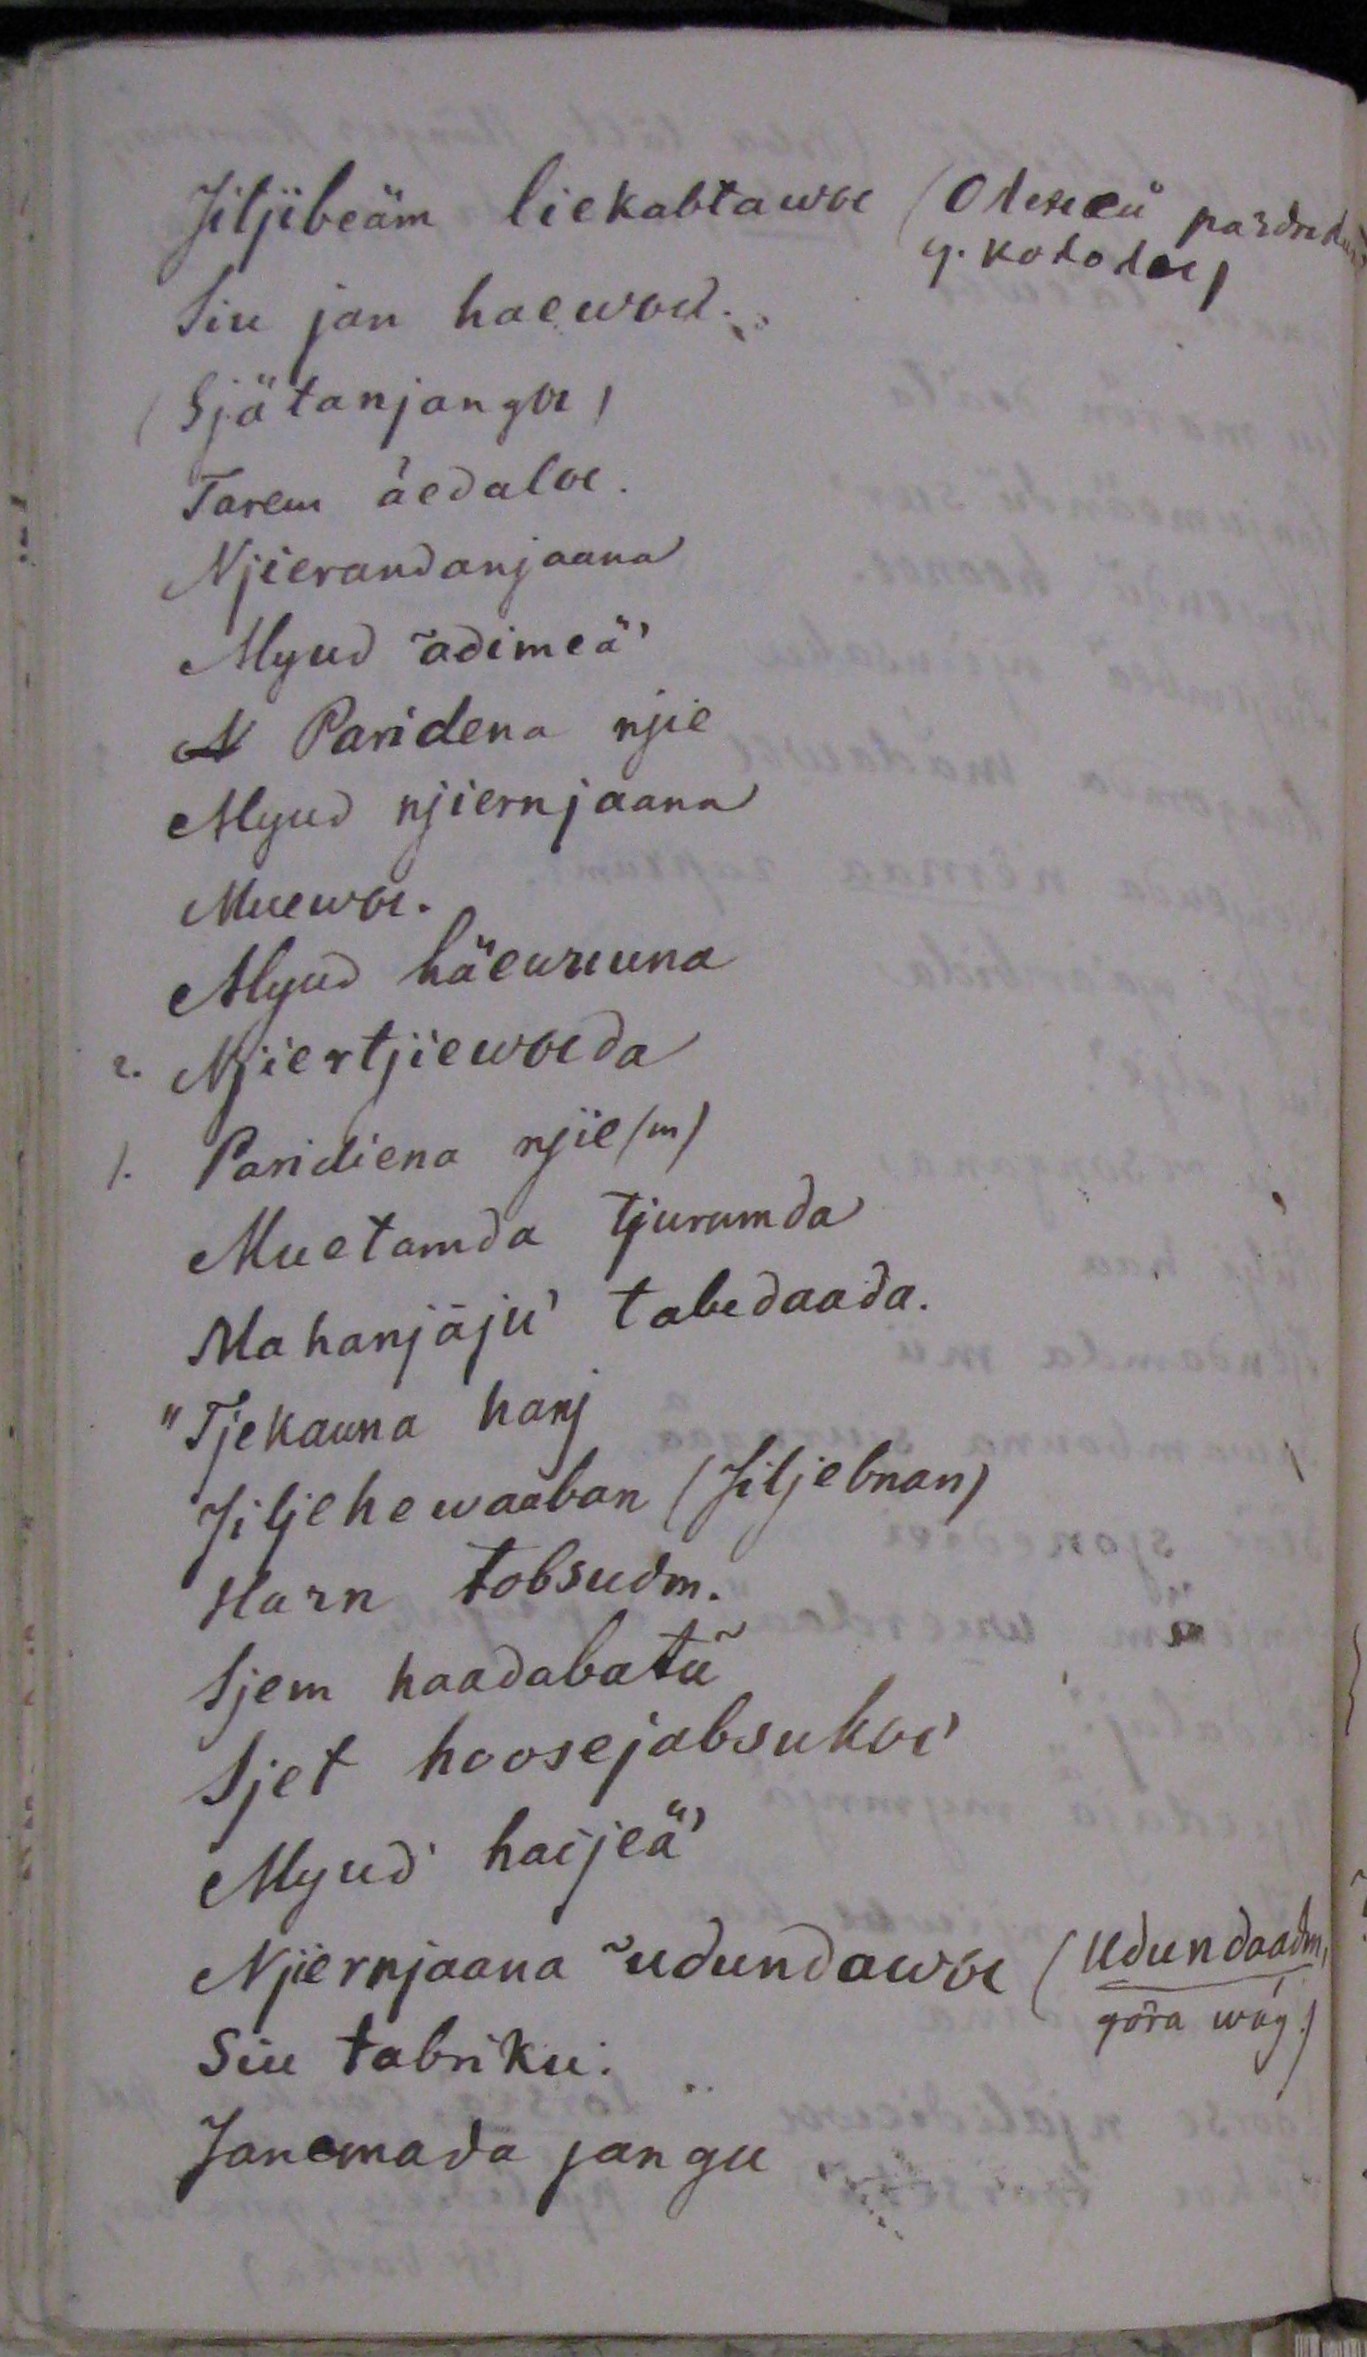 Jiljibeäm liekabtawoe (Олени раздели
у. кололы)
Siu jan haewod.
(Sjätanjangoe)
Tarem áedaloe.
Njierandanjaana
Myud ~adimeä'
Paridena njie
Myud njiernjaana
Muewoe.
Myud häewuuna
2. Njiertjiewoeda
1. Paridiena njie(m)
Muetamda Tjurumda
Mahanjäju' tabedaada.
"Tjekauna hanj
Jiljehewaaban (Jiljebnan)
Harn tobsudm.
Sjem haadabatu~
Sjet hoosejabsukoe'
Myud haijeä'
Njiernjaana ~udundawoe (Udundaadm,
göra väg.)
Siu tabriku.
Janemada jangu